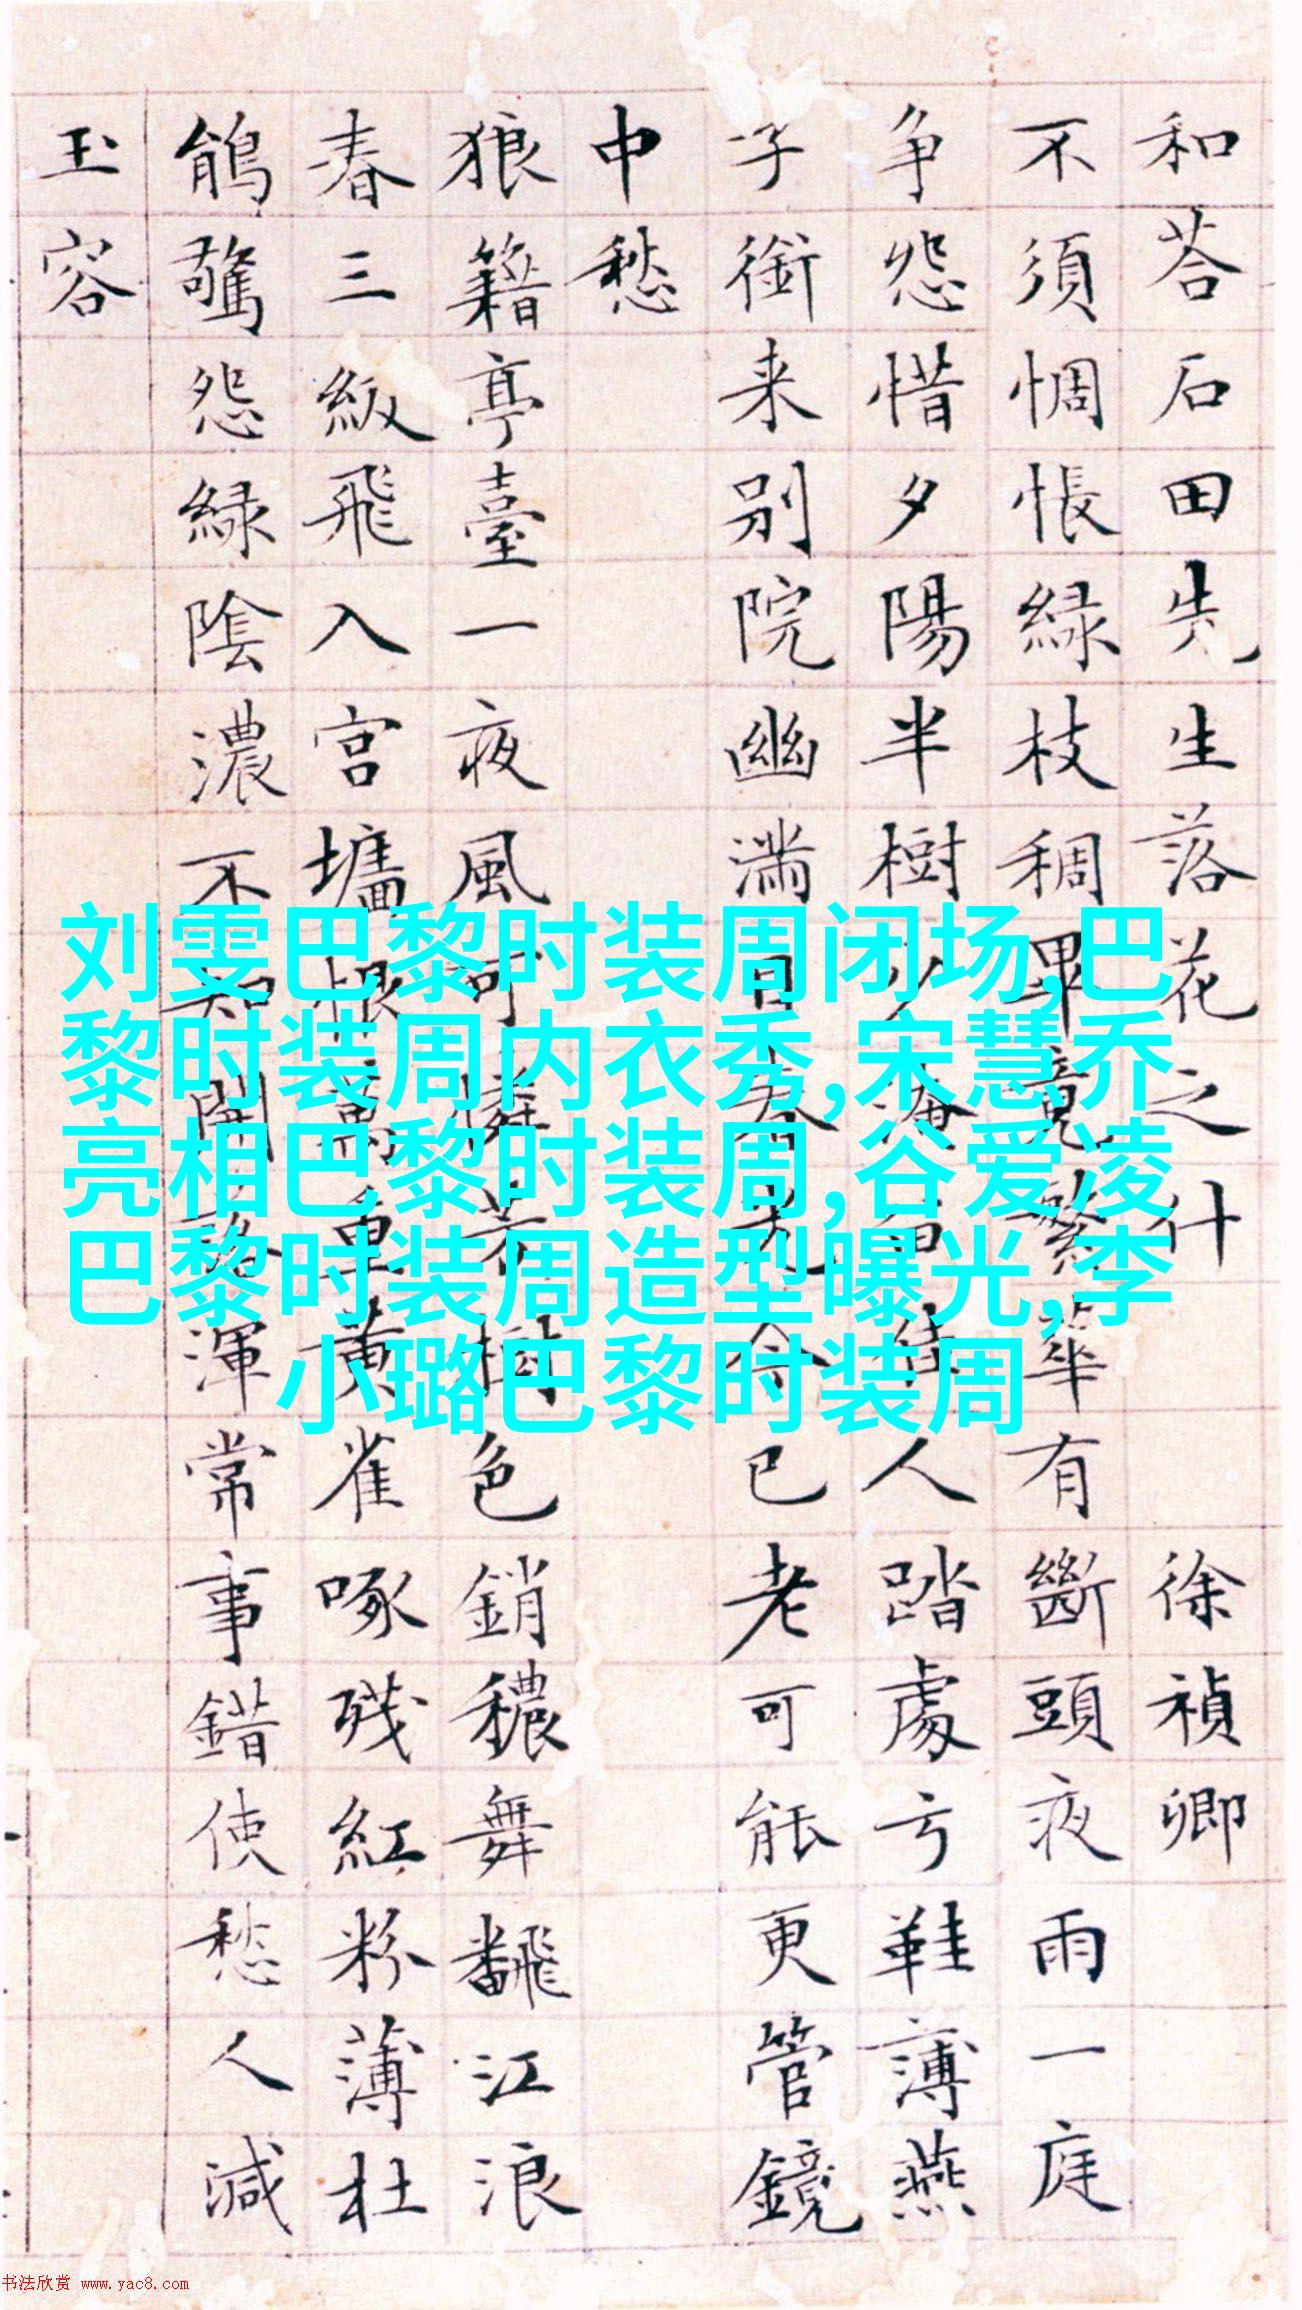 和荅石田先生落花之什 徐禎卿
不須惆悵緑枝稠畢竟繁華有斷頭夜雨一庭
争怨惜夕陽半樹少佳人踏處弓鞋薄燕
子銜来别院幽滿目春光今已老可能更管鏡
中愁
狼籍亭臺一夜風可憐芳樹色銷穠舞飜江浪
春三級飛入宫墻恨萬重黄雀啄殘紅粉薄杜
鵑驚怨緑陰濃不知開落渾常事錯使愁人減
玉容
刘雯巴黎时装周闭场,巴
黎时装周内衣秀,宋慧乔
亮相巴黎时装周,谷爱凌
巴黎时装周造型曝光,李
小璐巴黎时装周
书法欣赏 www.yac8.com